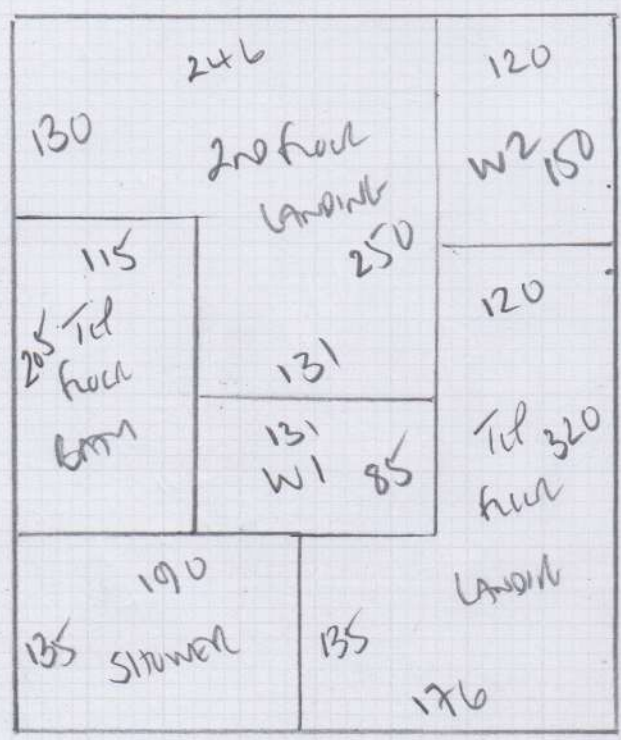 246
130
2nd Floor
LANDING
250
131
120
W2 150
115
205
Floor
BATH
131
W1 85
120
320
Floor
LANDIN
190
135 SHOWER
135
176